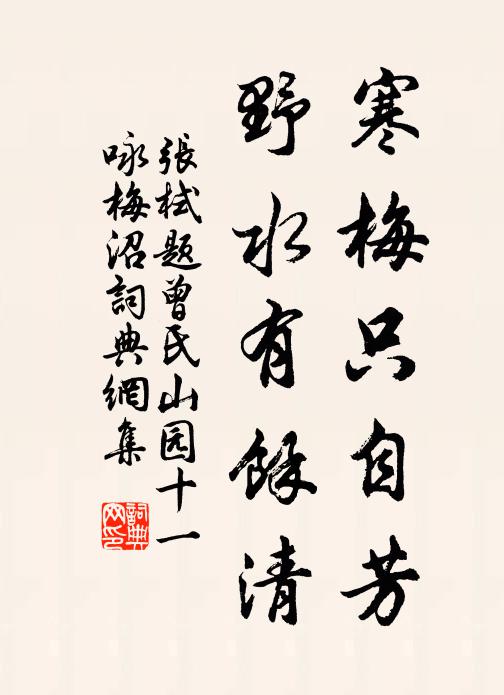 寒梅只自芳
野水有餘清
張栻題曾氏山园十一
咏梅沼詞典網集
詞典網印